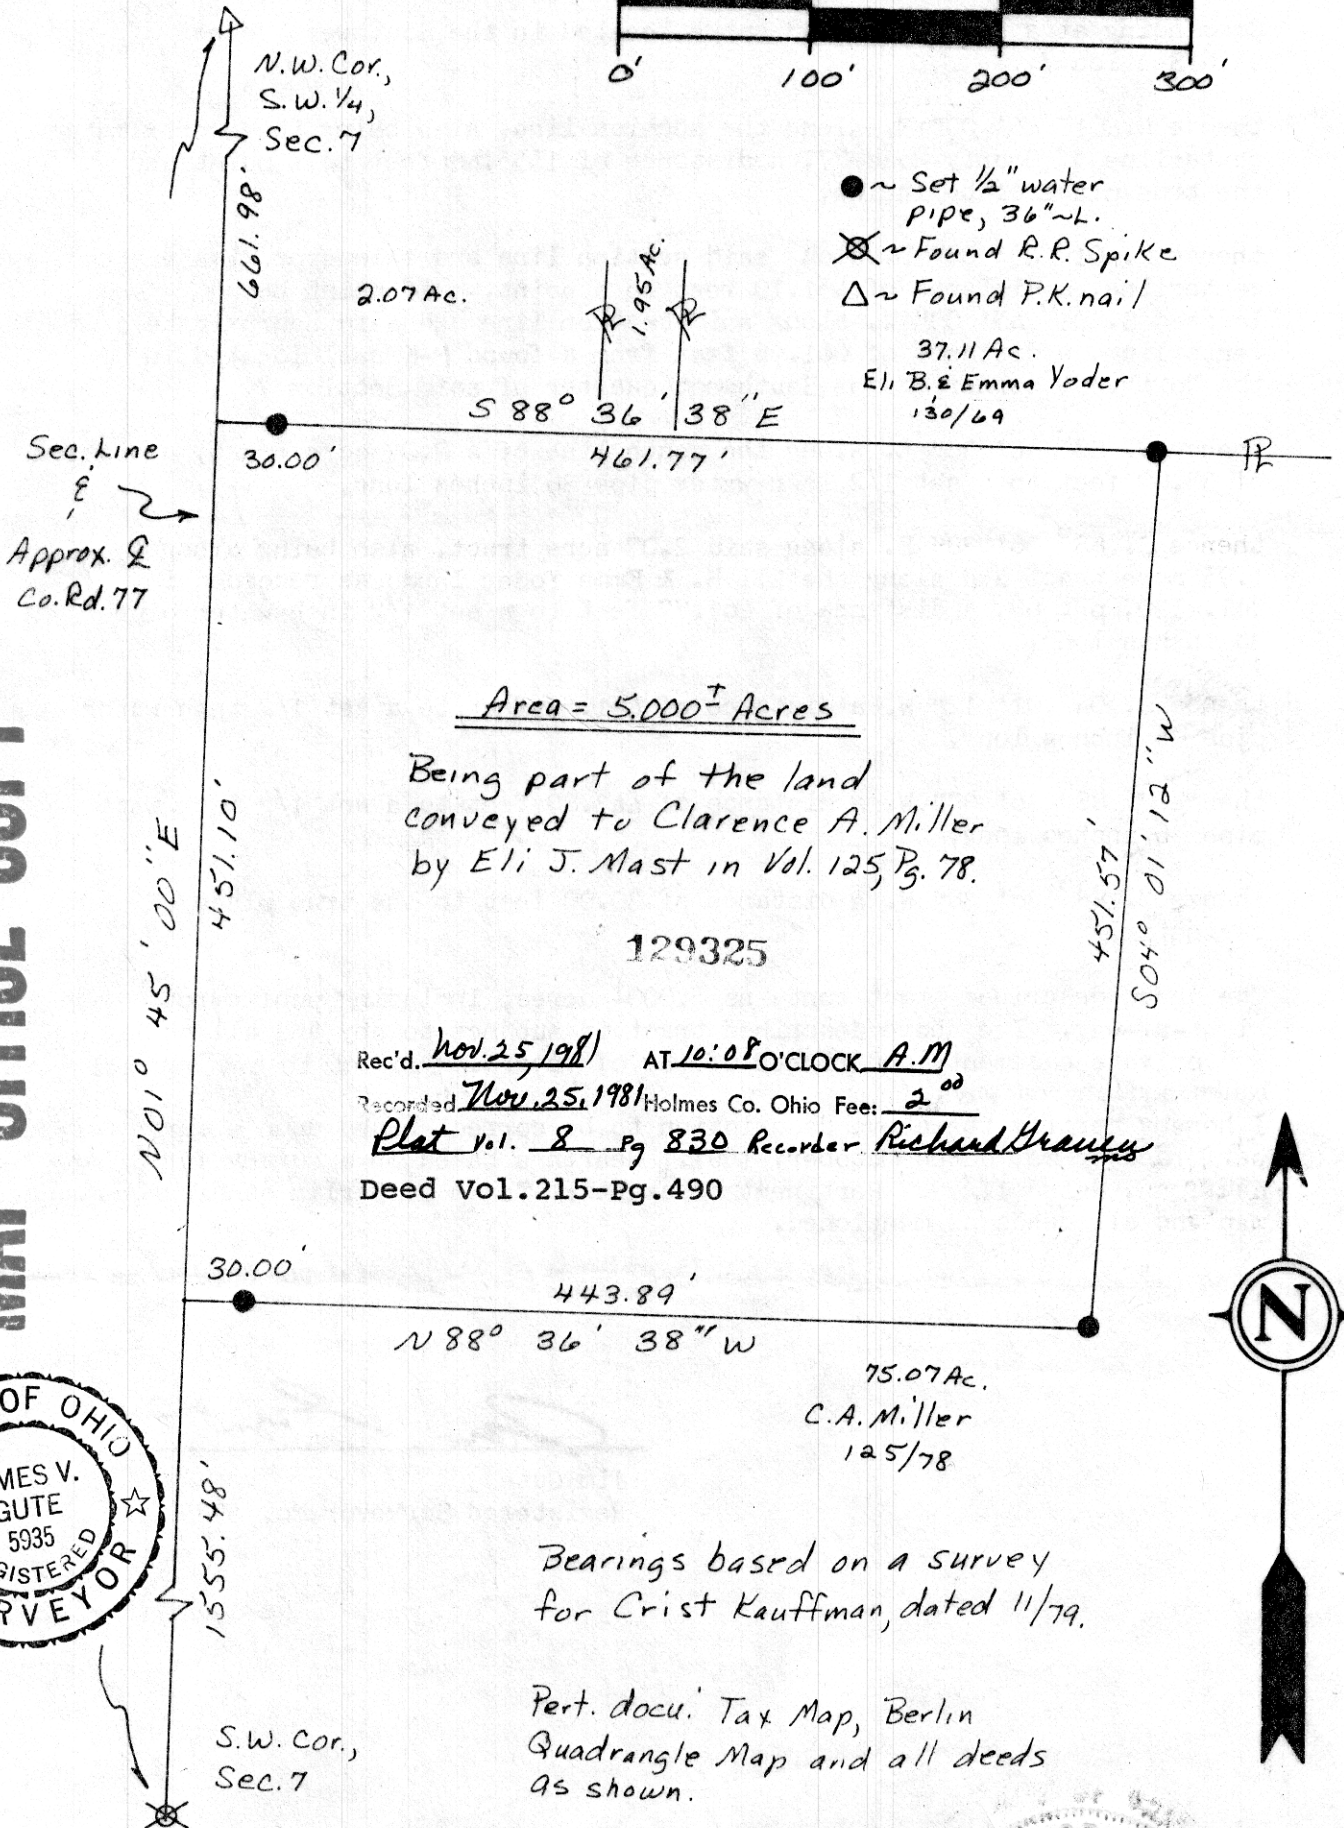 0' 100' 200' 300'
N.W. Cor.,
S.W. 1/4,
Sec. 7
● ~ Set 1/2" water
pipe, 36" ~L.
~ Found R.R. Spike
△ ~ Found P.K. nail
661.98'
2.07 Ac.
1.95 Ac.
37.11 Ac.
Eli B. & Emma Yoder
130/69
S 88° 36' 38" E
30.00'
461.77'
PL
Sec. Line
&
Approx. ℄
Co. Rd. 77
Area = 5.000± Acres
Being part of the land
conveyed to Clarence A. Miller
by Eli J. Mast in Vol. 125, Pg. 78.
N 01° 45' 00" E
451.10'
451.57'
S 04° 01' 12" W
129325
Rec'd. Nov. 25, 1981 AT 10:08 O'CLOCK A.M
Recorded Nov. 25, 1981 Holmes Co. Ohio Fee: 2 00
Plat Vol. 8 Pg 830 Recorder Richard
Deed Vol.215-Pg.490
30.00'
443.89'
N 88° 36' 38" W
N
75.07 Ac.
C.A. Miller
125/78
OF OHIO
MES V.
GUTE
5935
GISTERED
RVEYOR
1555.48'
Bearings based on a survey
for Crist Kauffman, dated 11/79.
S.W. Cor.,
Sec. 7
Pert. docu: Tax Map, Berlin
Quadrangle Map and all deeds
as shown.